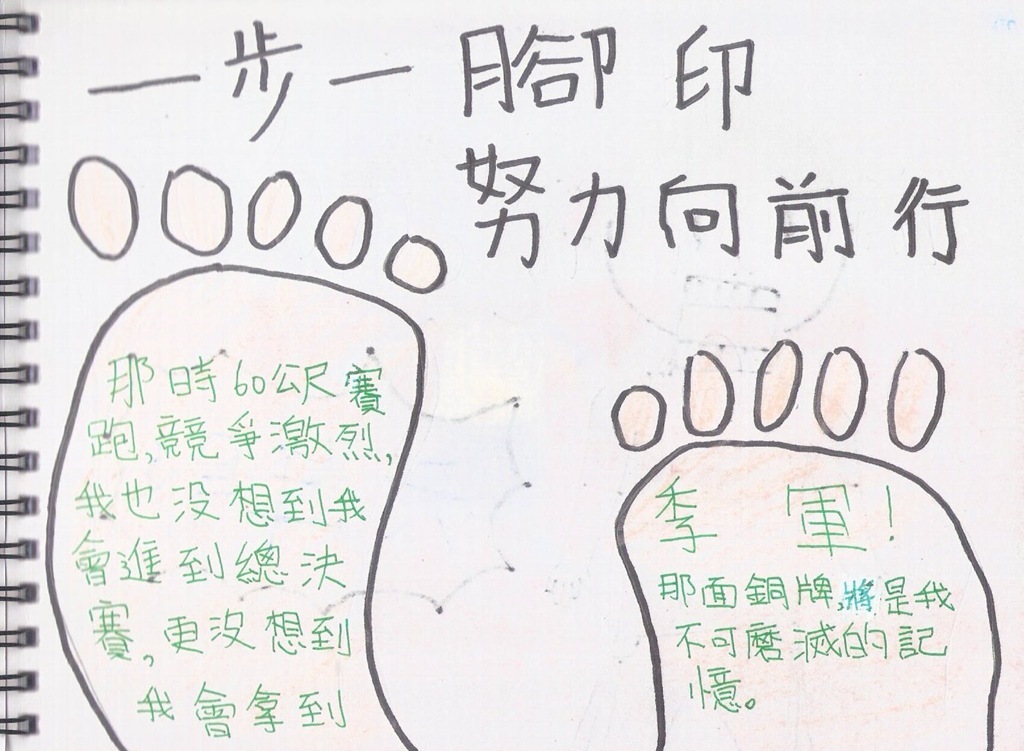 一步一腳印
努力向前行
那時60公尺賽
跑,競爭激烈,
我也没想到我
會進到總決
賽,更沒想到
我會拿到
季軍!
那面銅牌,將是我
不可磨滅的記
憶。